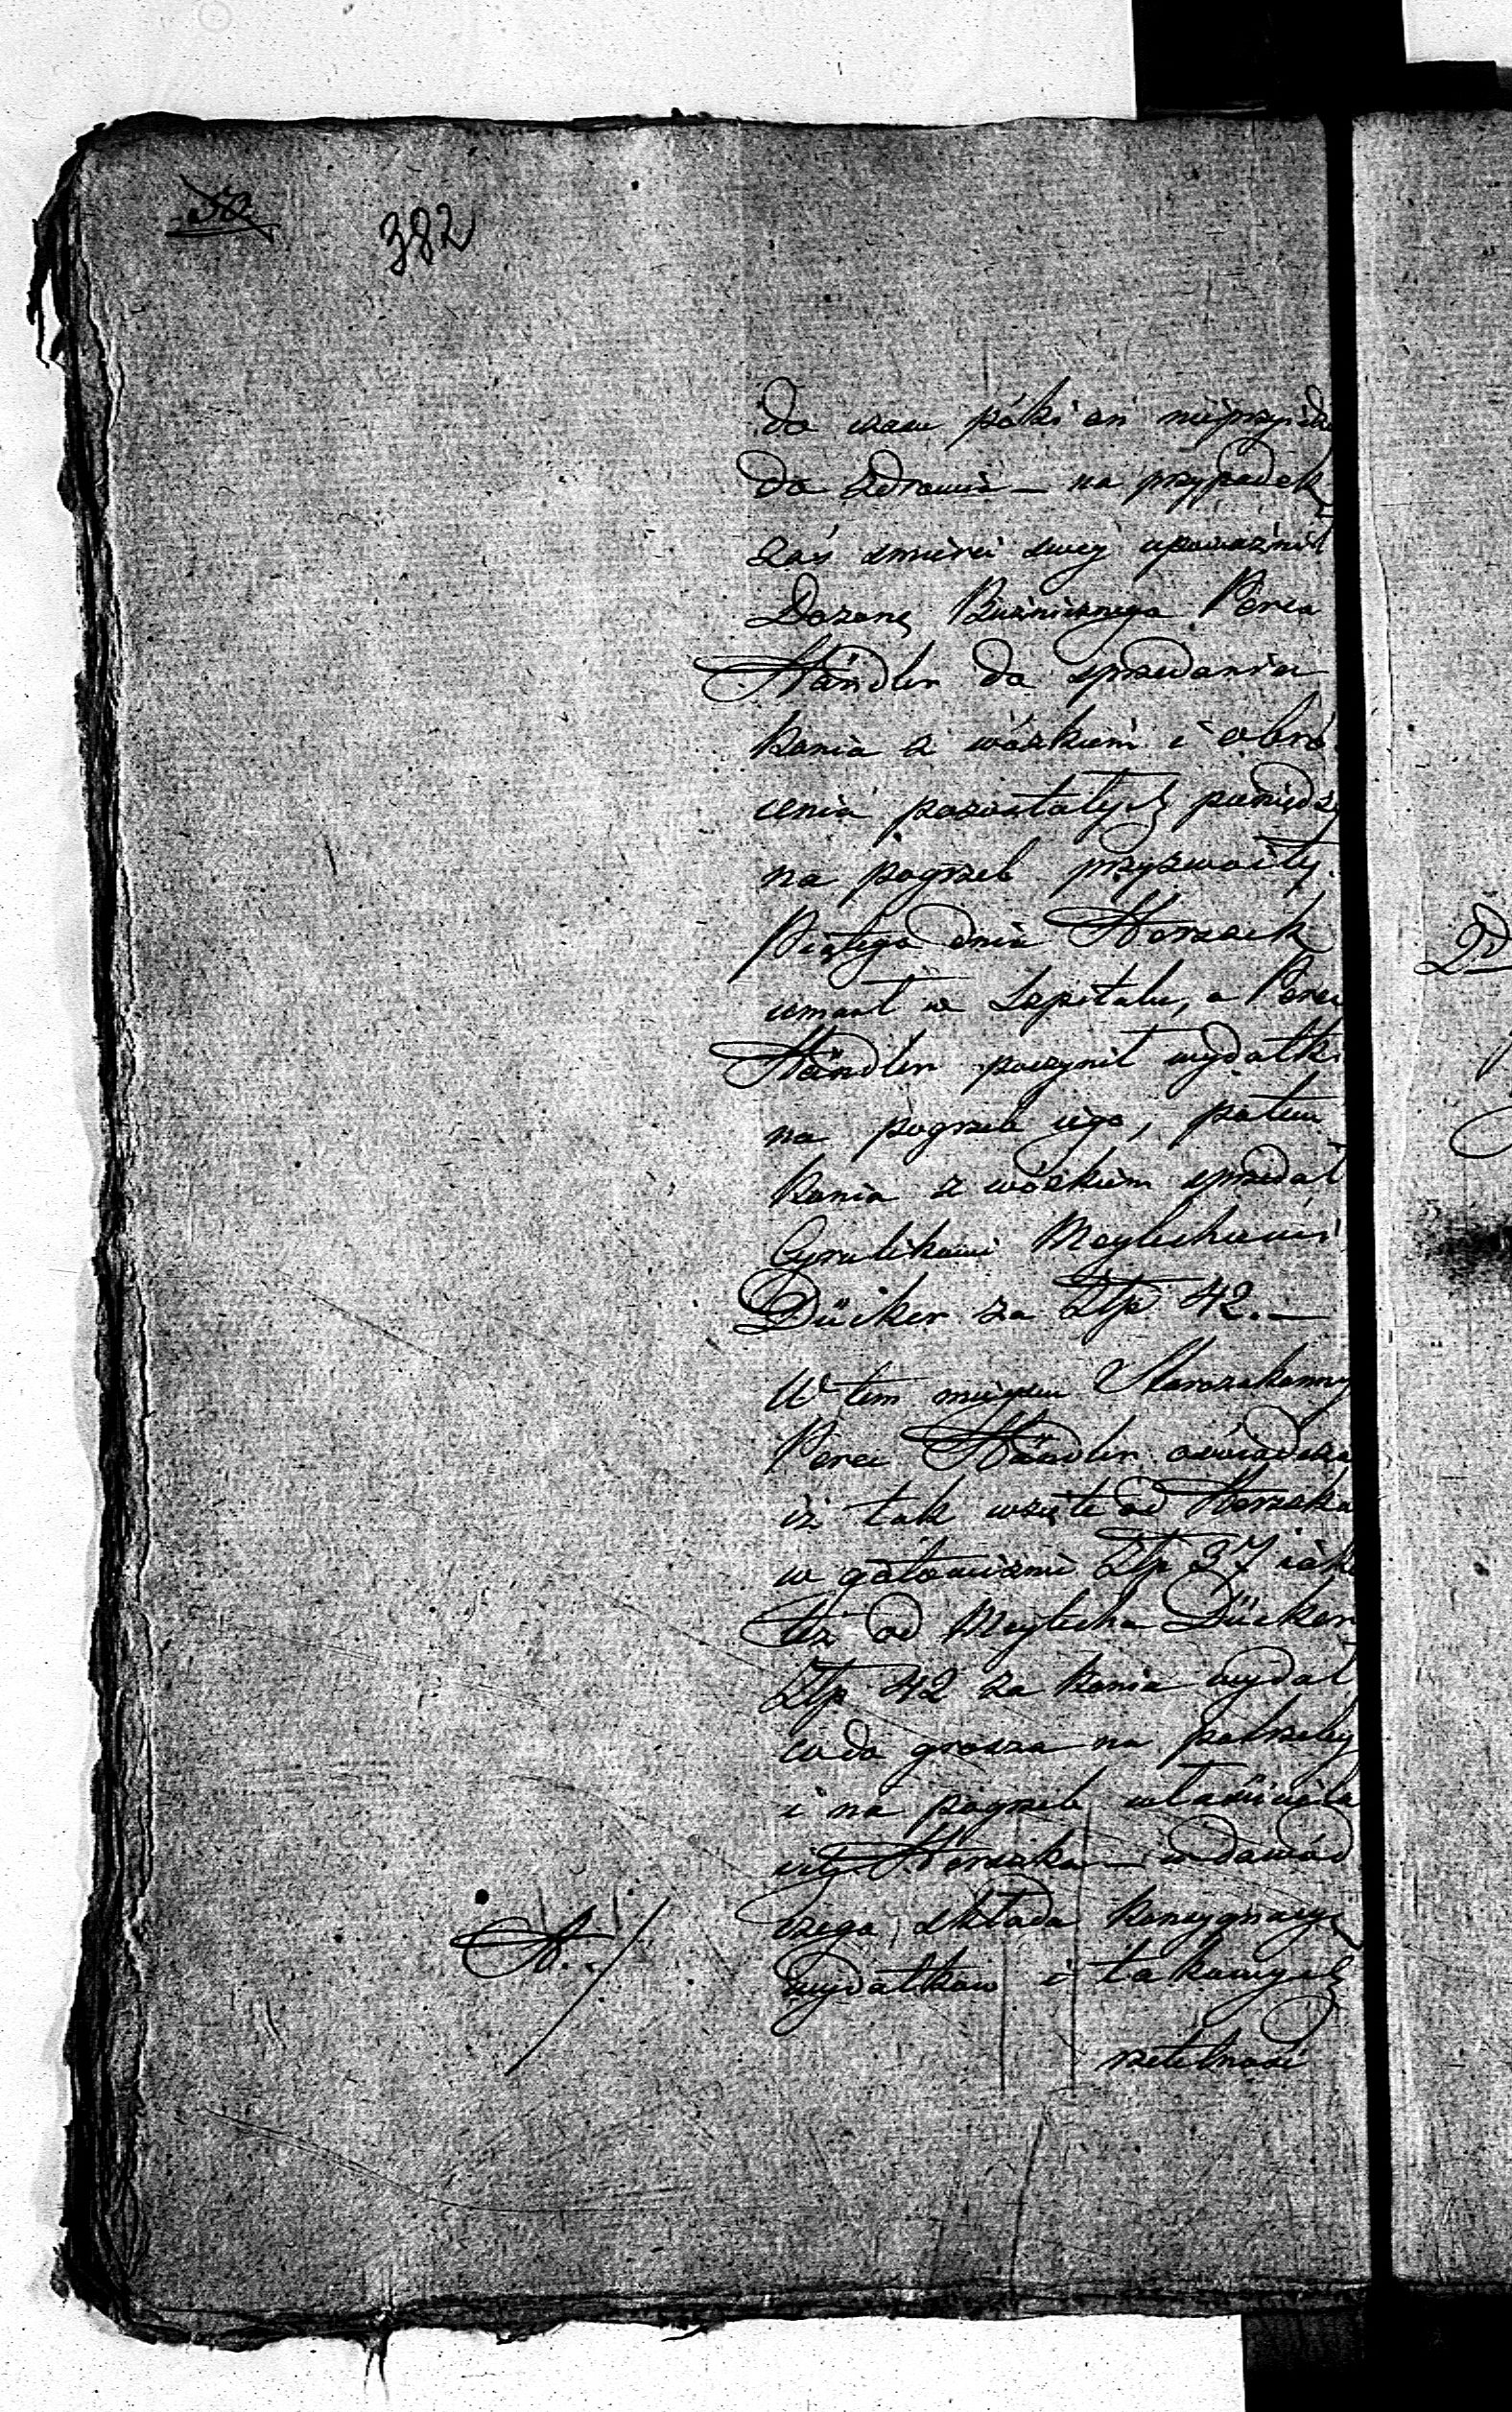 382
do czasu póki on nieprzyidzie
do zdrowia — na przypadek
zaś smierci swey upoważnił
Dozorcę Bużnicznego Perca
Händler do sprzedania
konia z wózkiem i obró-
cenia pozostałych pieniędzy
na pogrzeb przyzwoity.
Piątego dnia Herszek
umarł w Szpitalu, a Perec
Händler poczynił wydatki
na pogrzeb iego, potem
konia z wózkiem sprzedał
Cyrulikowi Meylechowi
Dücker za Złp 42. —
W tem mieyscu Starozakonny
Perec Händler oświadcza
iż tak wzięte od Herszka
w gotowiźnie Złp 37 iako
też od Meylecha Dücker
Złp 42 za konia wydał
co do grosza na potrzeby
i na pogrzeb właściciela
Herszka — w dowód
A. czego składa konsygnacyę
wydatków i takowych
rzetelność